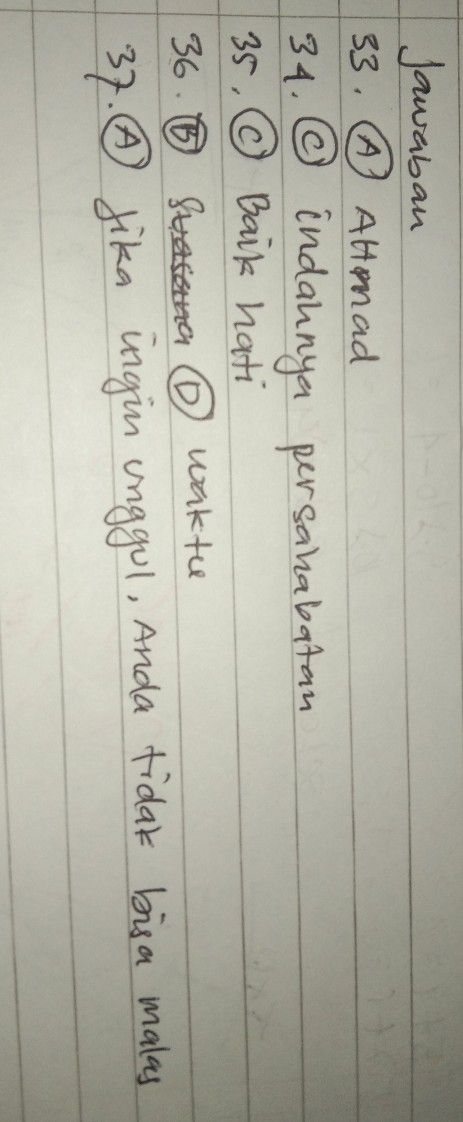 Jawaban
33. A Ahmad
34. C indahnya persahabatan
35. C Baik hati
36. B Suasana D waktu
37. A Jika ingin unggul, Anda tidak bisa malas